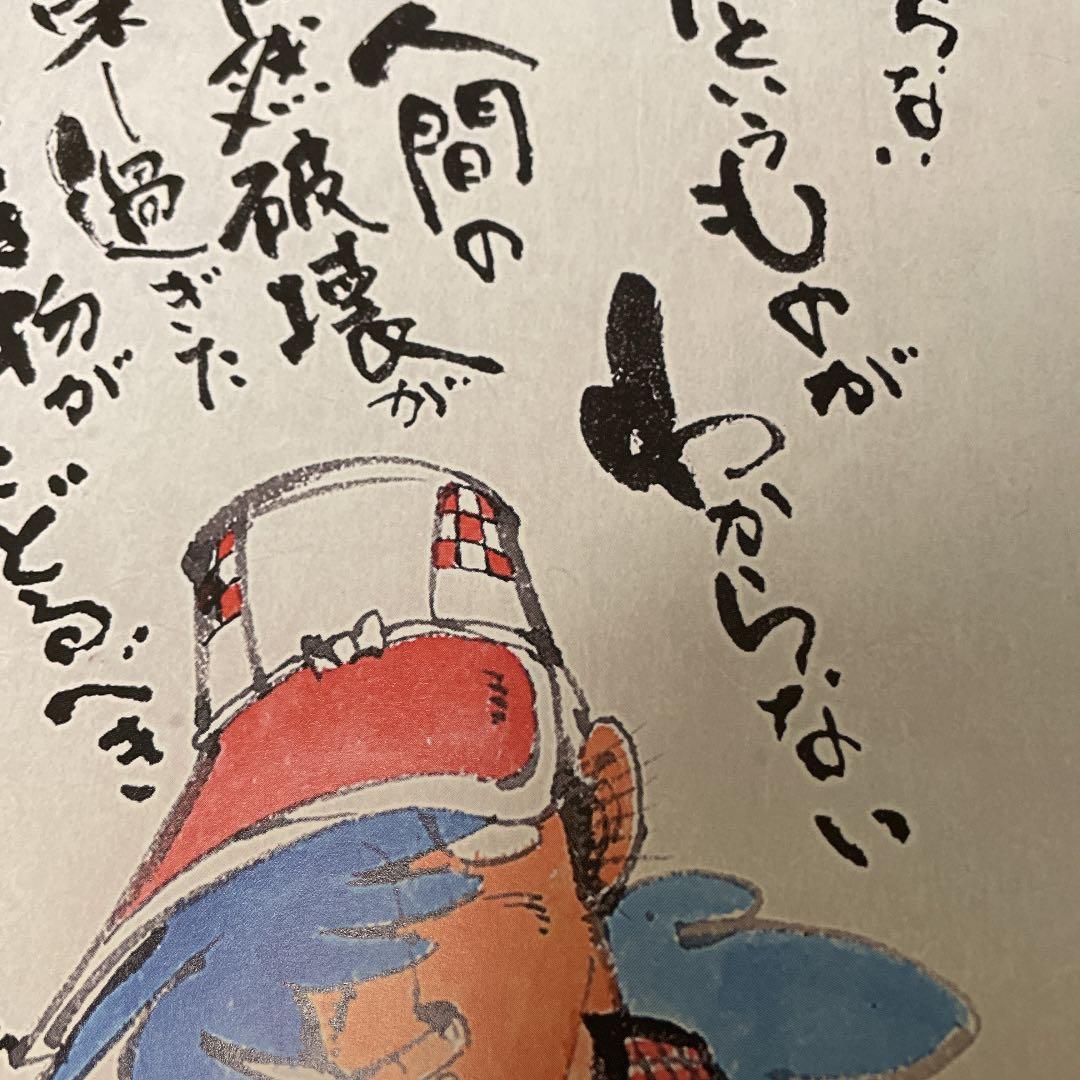 らない
というものが
わからない
人間の
然破壊が
過ぎた
物が
どるべき